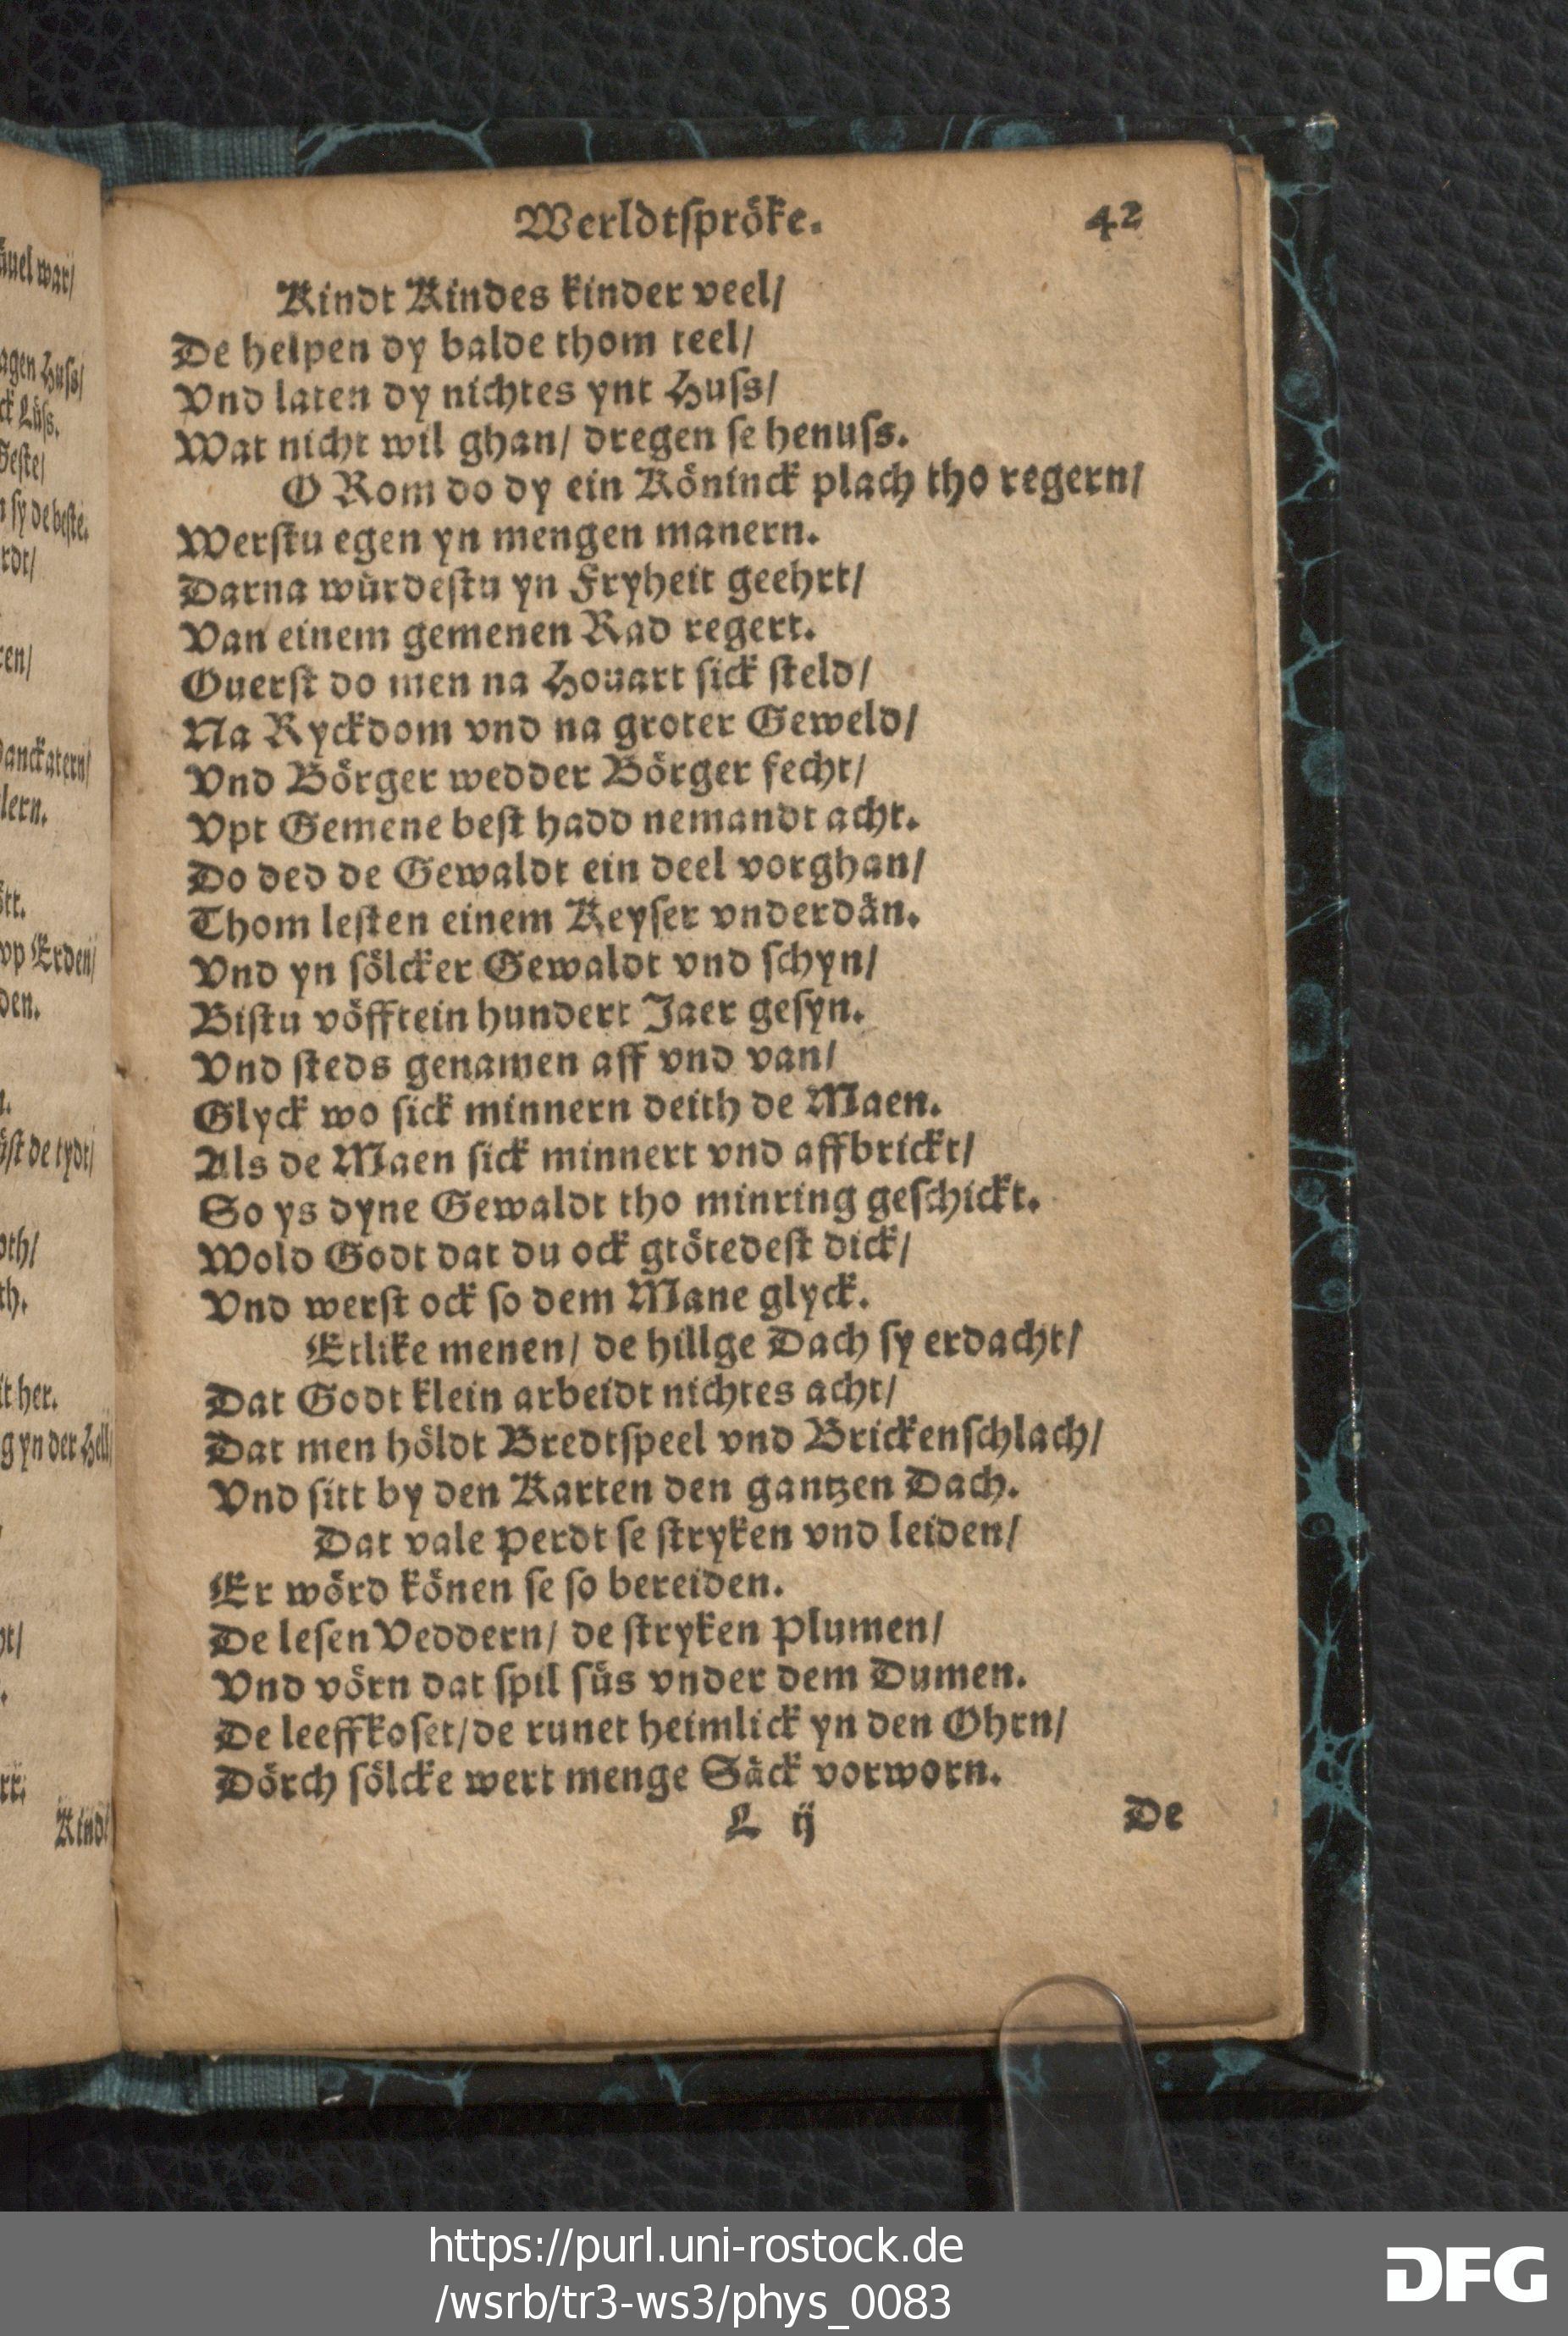 Werldtſpröke. 42
Kindt Kindes kinder veel/
De helpen dy balde thom teel/
Vnd laten dy nichtes ynt Huſs/
Wat nicht wil ghan/ dregen ſe henuſs.
O Rom do dy ein Köninck plach tho regern/
Werſtu egen yn mengen manern.
Darna würdeſtu yn Fryheit geehrt/
Van einem gemenen Rad regert.
Ouerſt do men na Houart ſick ſteld/
Na Ryckdom vnd na groter Geweld/
Vnd Börger wedder Börger fecht/
Vpt Gemene beſt hadd nemandt acht.
Do ded de Gewaldt ein deel vorghan/
Thom leſten einem Keyſer vnderdän.
Vnd yn ſölcker Gewaldt vnd ſchyn/
Biſtu vöfftein hundert Jaer geſyn.
Vnd ſteds genamen aff vnd van/
Glyck wo ſick minnern deith de Maen.
Als de Maen ſick minnert vnd affbrickt/
So ys dyne Gewaldt tho minring geſchickt.
Wold Godt dat du ock grötedeſt dick/
Vnd werſt ock ſo dem Mane glyck.
Etlike menen/ de hillge Dach ſy erdacht/
Dat Godt klein arbeidt nichtes acht/
Dat men höldt Bredtſpeel vnd Brickenſchlach/
Vnd ſitt by den Karten den gantzen Dach.
Dat vale Perdt ſe ſtryken vnd leiden/
Er wörd könen ſe ſo bereiden.
De leſen Veddern/ de ſtryken Plumen/
Vnd vörn dat ſpil ſüs vnder dem Dumen.
De leeffkoſet/ de runet heimlick yn den Ohrn/
Dörch ſölcke wert menge Säck vorworn.
L ij De
äuel war/
agen Huſs/
ck Lüſs.
Geſte/
n ſy de beſte.
rdt/
ren/
lern.
vp Erden/
den.
üſt de tydt/
th.
it her.
g yn der Hell/
Kindt
https://purl.uni-rostock.de
/wsrb/tr3-ws3/phys_0083
DFG